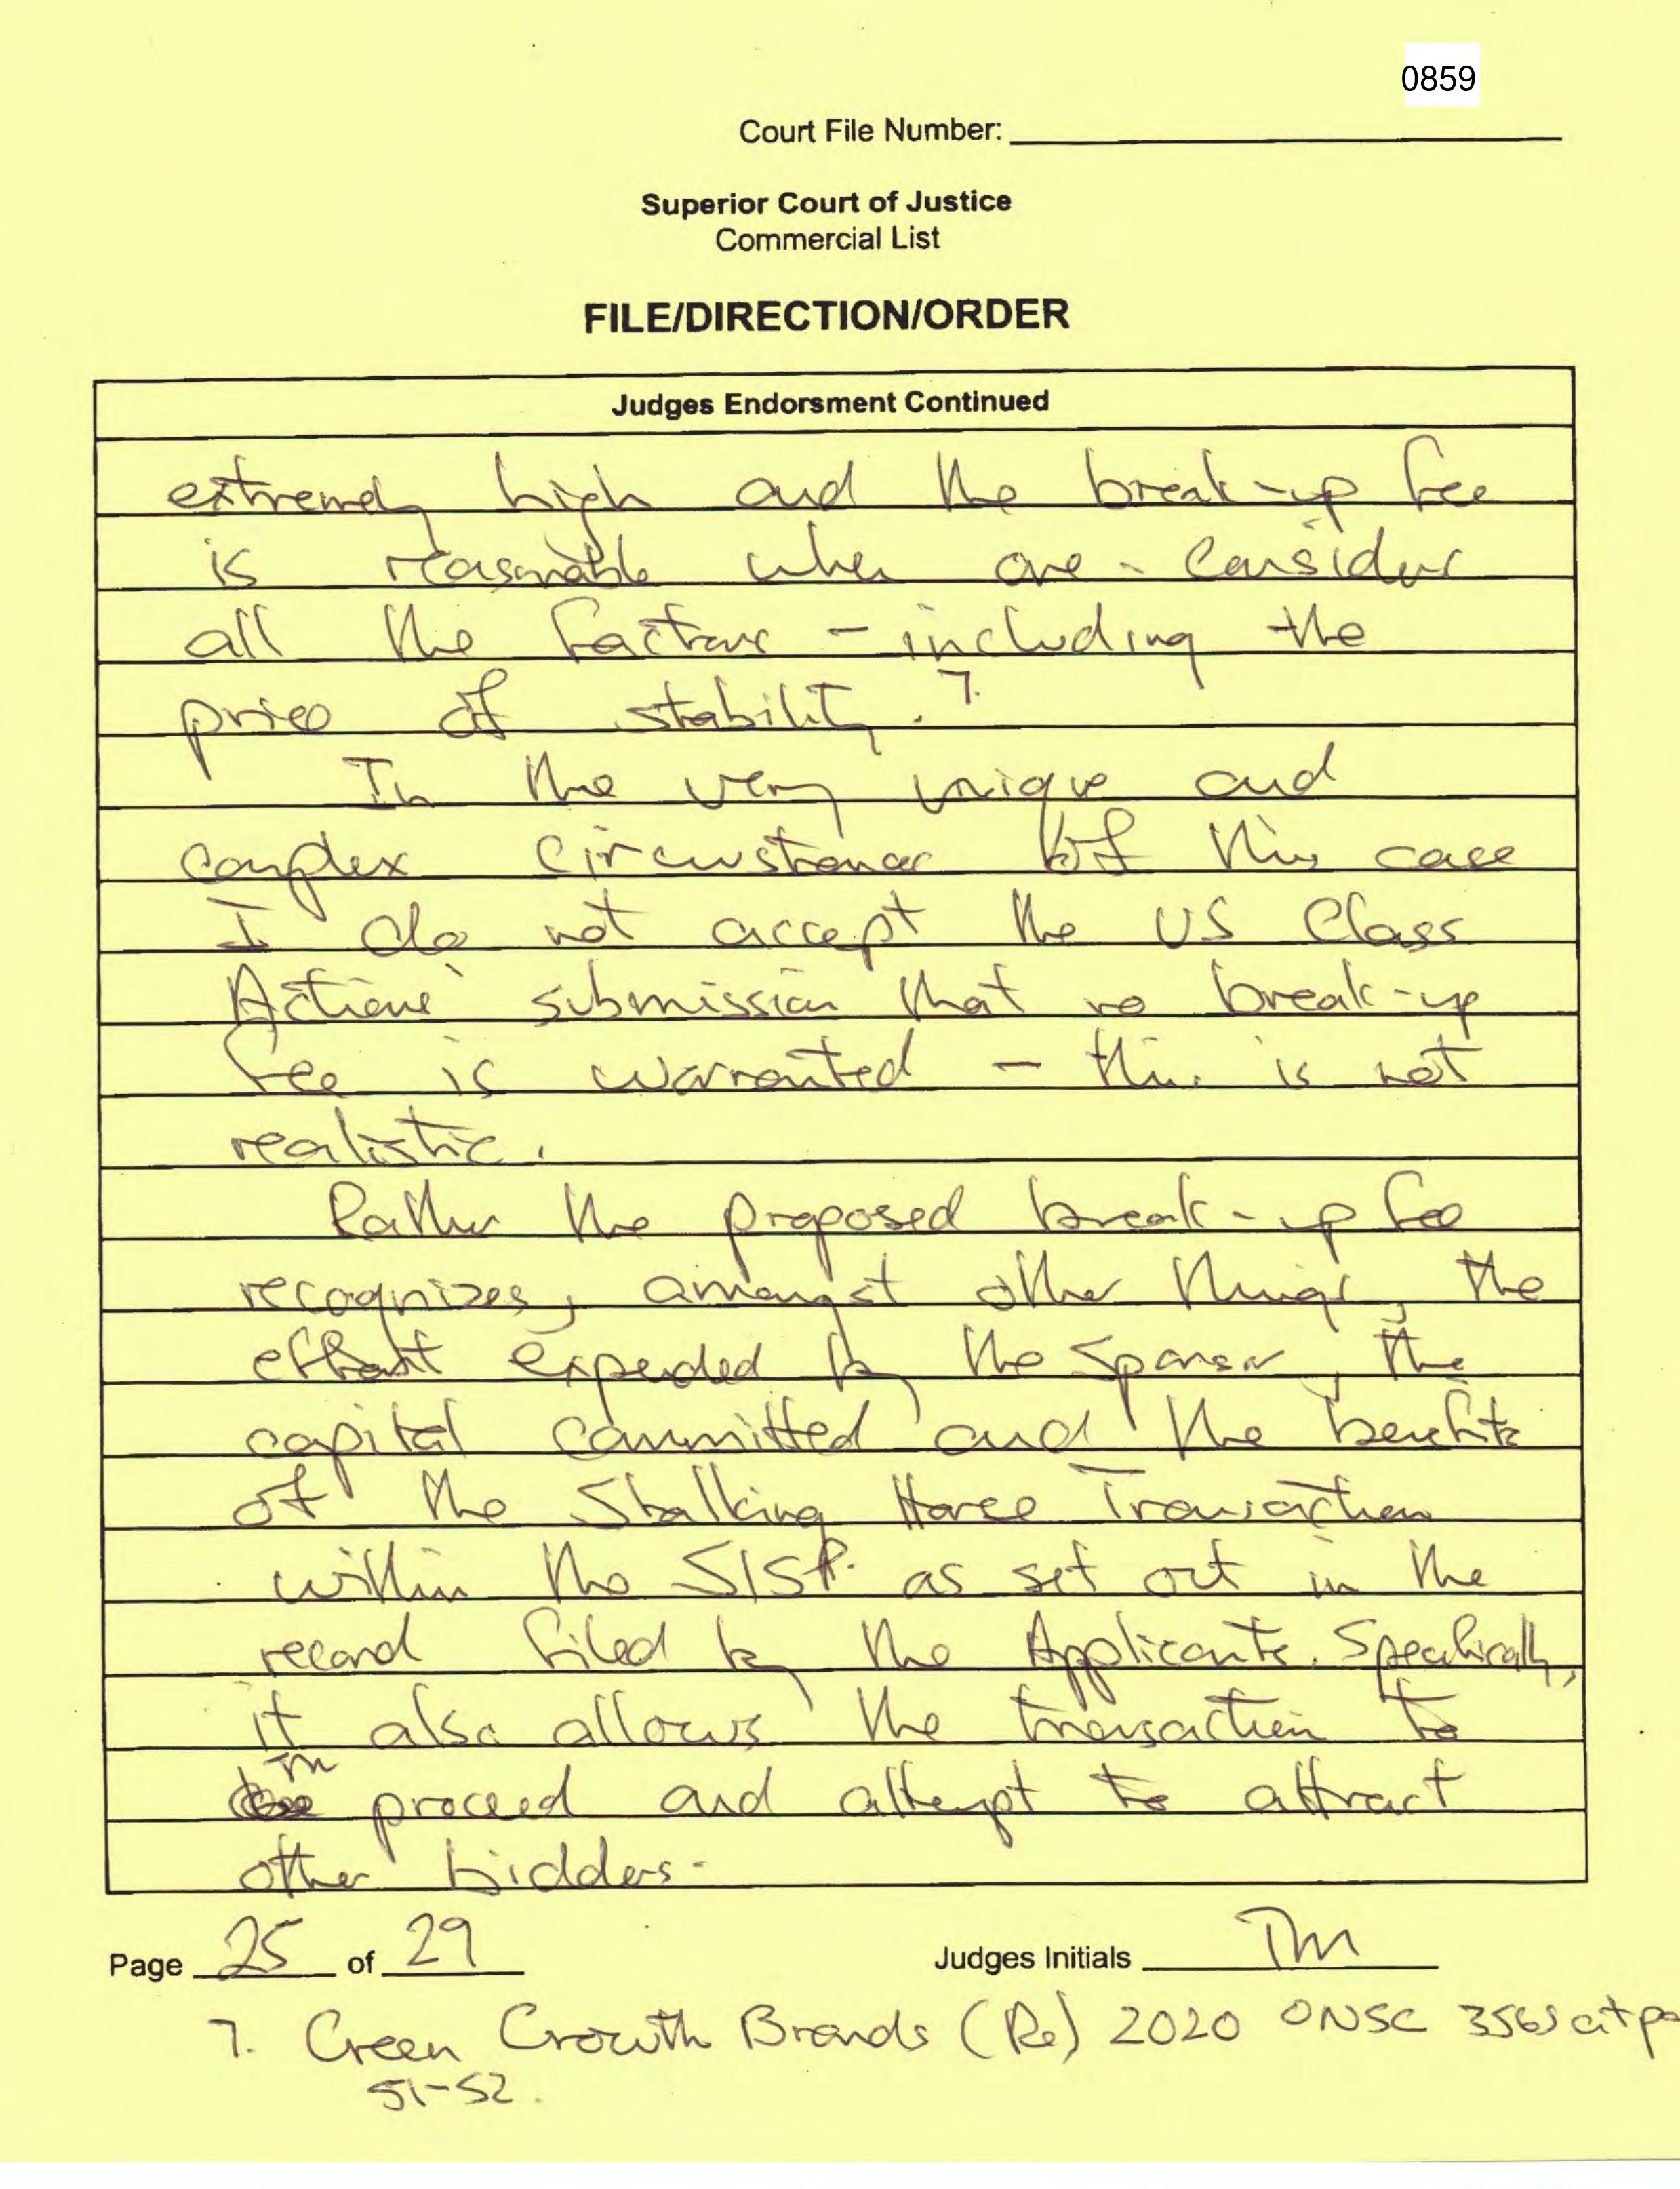 0859
Court File Number:
Superior Court of Justice
Commercial List
FILE/DIRECTION/ORDER
Judges Endorsment Continued
extremely high and the break-up fee
is reasonable when one - consider
all the factors - including the
price of stability. 7.
In the very unique and
complex circumstances of this case
I do not accept the US Class
Actions' submission that no break-up
fee is warranted - this is not
realistic.
Rather the proposed break-up fee
recognizes, amongst other things, the
effort expended by the Sponsor, the
capital committed and the benefits
of the Stalking Horse Transaction
within the SISP. as set out in the
record filed by the Applicants. Specifically,
it also allows the transaction to
TM
proceed and attempt to attract
other bidders.
Page 25 of 29
Judges Initials TM
7. Green Growth Brands (Re) 2020 ONSC 3565 at pa
51-52.